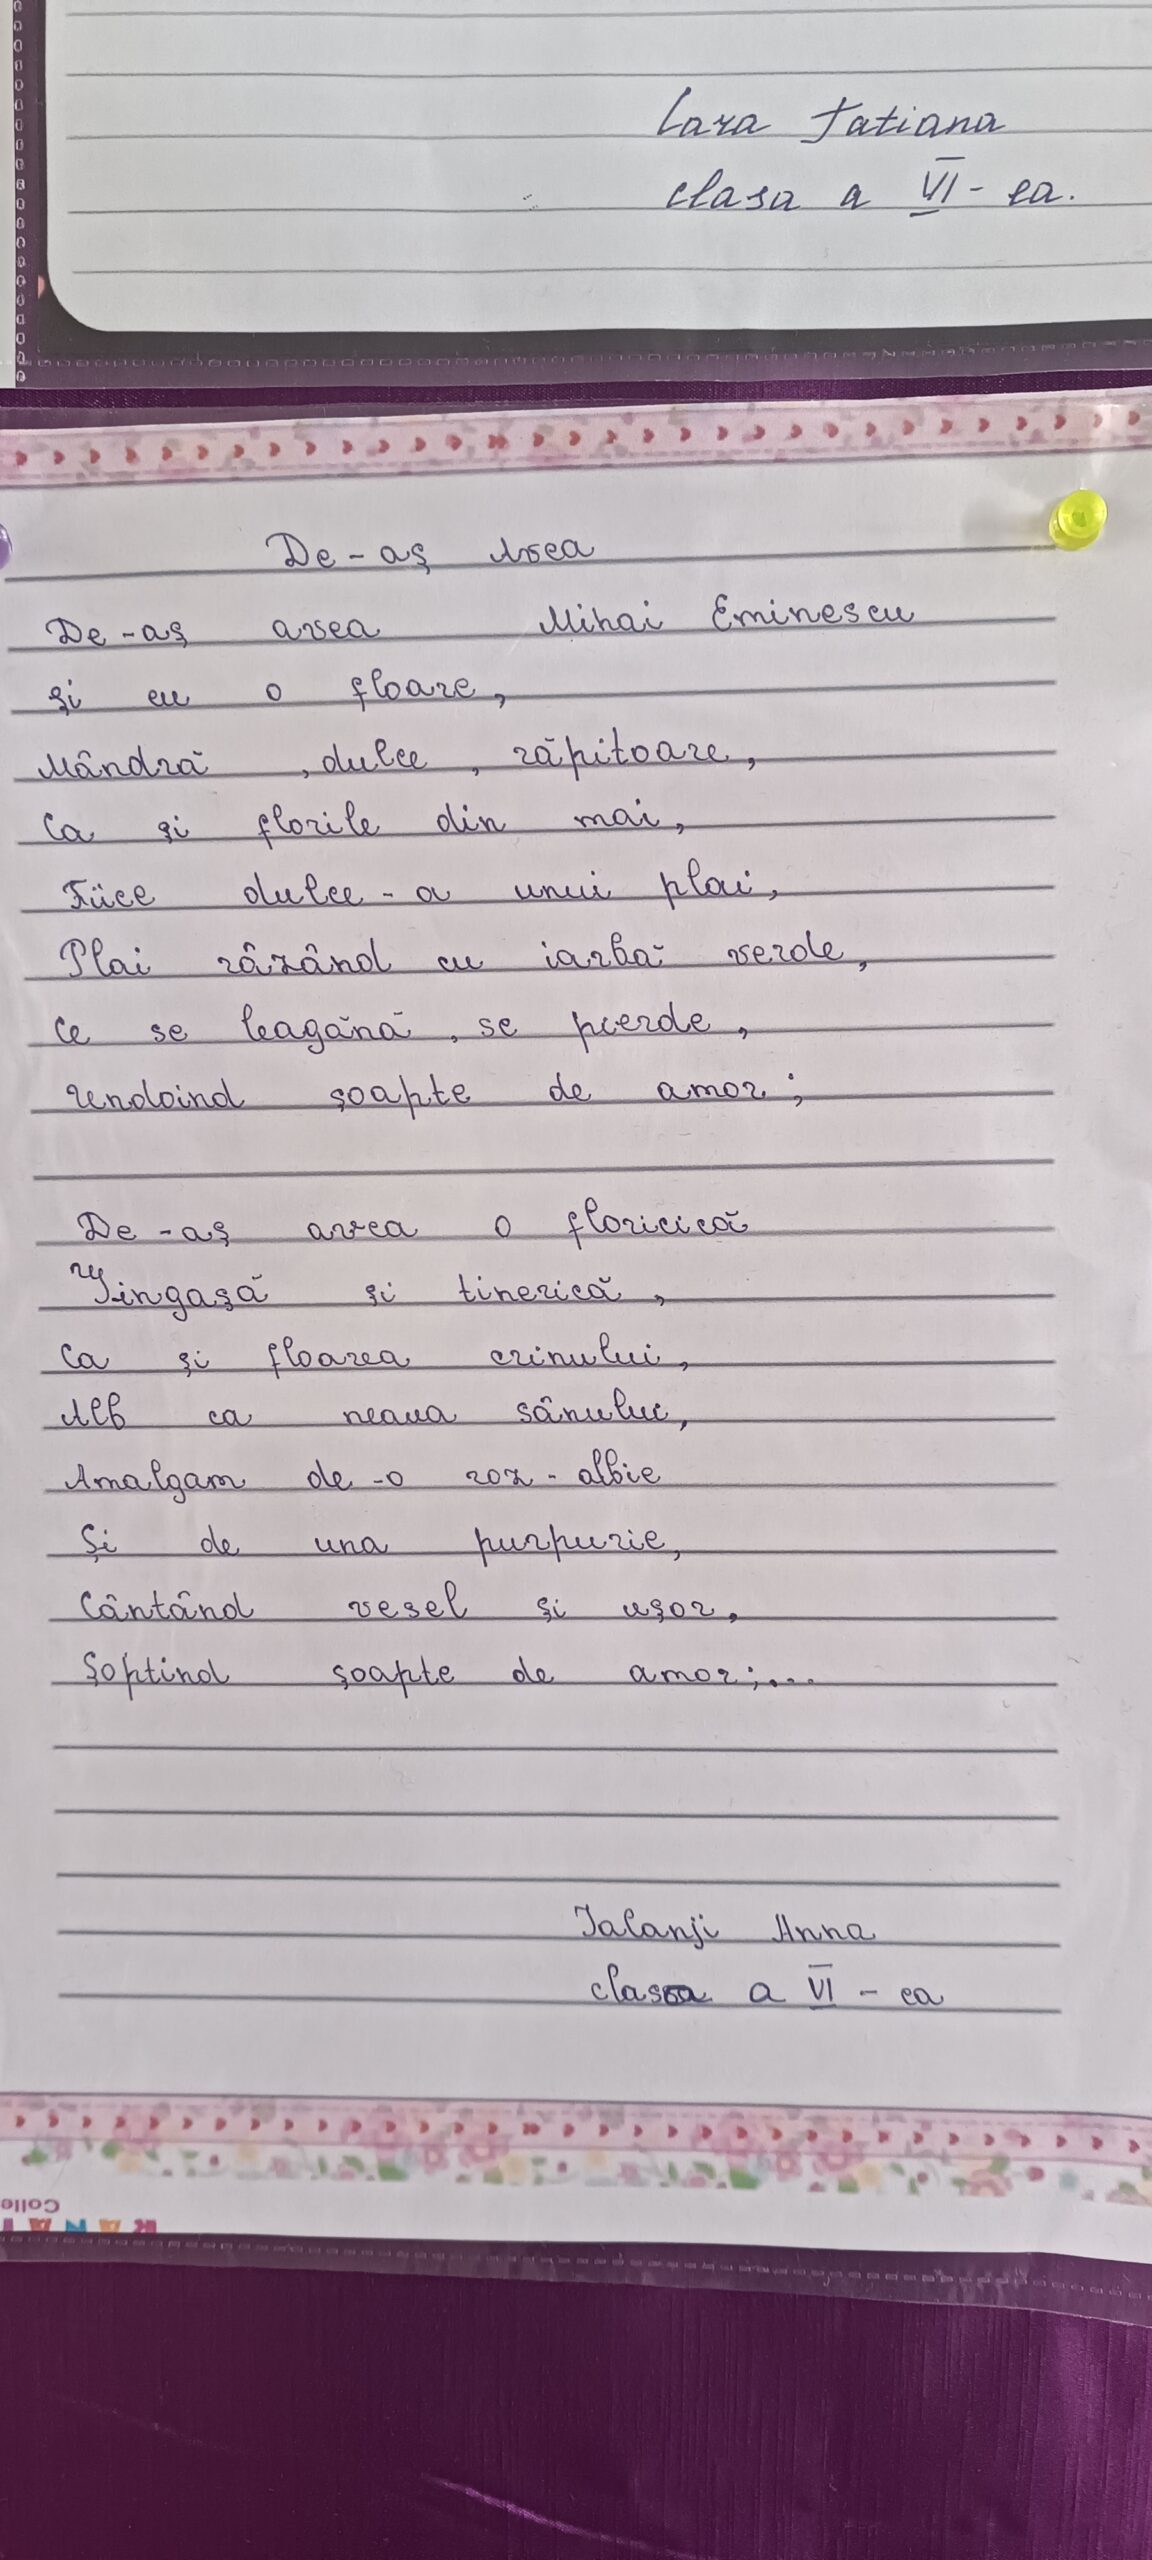 Cara Tatiana
clasa a VI-ea.
De-aș Avea
De-aș avea Mihai Eminescu
și eu o floare,
Mândră , dulce , răpitoare,
Ca și florile din mai,
Fiice dulce-a unui plai,
Plai râzând cu iarbă verde,
Ce se leagănă , se pierde,
Undoind șoapte de amor;
De-aș avea o floricică
Gingașă și tinerică,
Ca și floarea crinului,
Alb ca neaua sânului,
Amalgam de-o roz-albie
Și de una purpurie,
Cântând vesel și ușor,
Șoptind șoapte de amor;...
Ialanji Anna
clasa a VI-ea
KANA
Colle